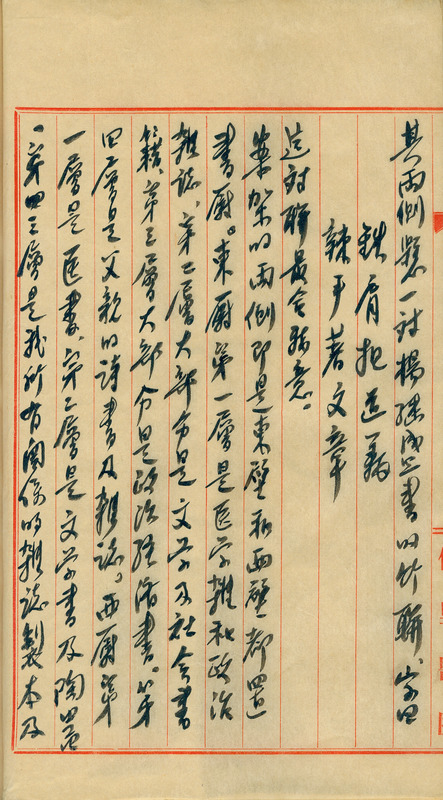 其兩側懸一對楊繼盛書的竹聯、字曰
鉄肩担道義
辣手著文章
這対聯最合我意。
案架的兩側即是東壁和西壁都置
書厨。東厨第一層是医学雜和政治
雜誌、第二層大部分是文学及社会書
籍、第三層大部分是政治経済書。第
四層是父親的詩書及雜誌。西厨第
一層是医書、第二層是文学書及陶器
、第四三層是我所有関係的雜誌製本及